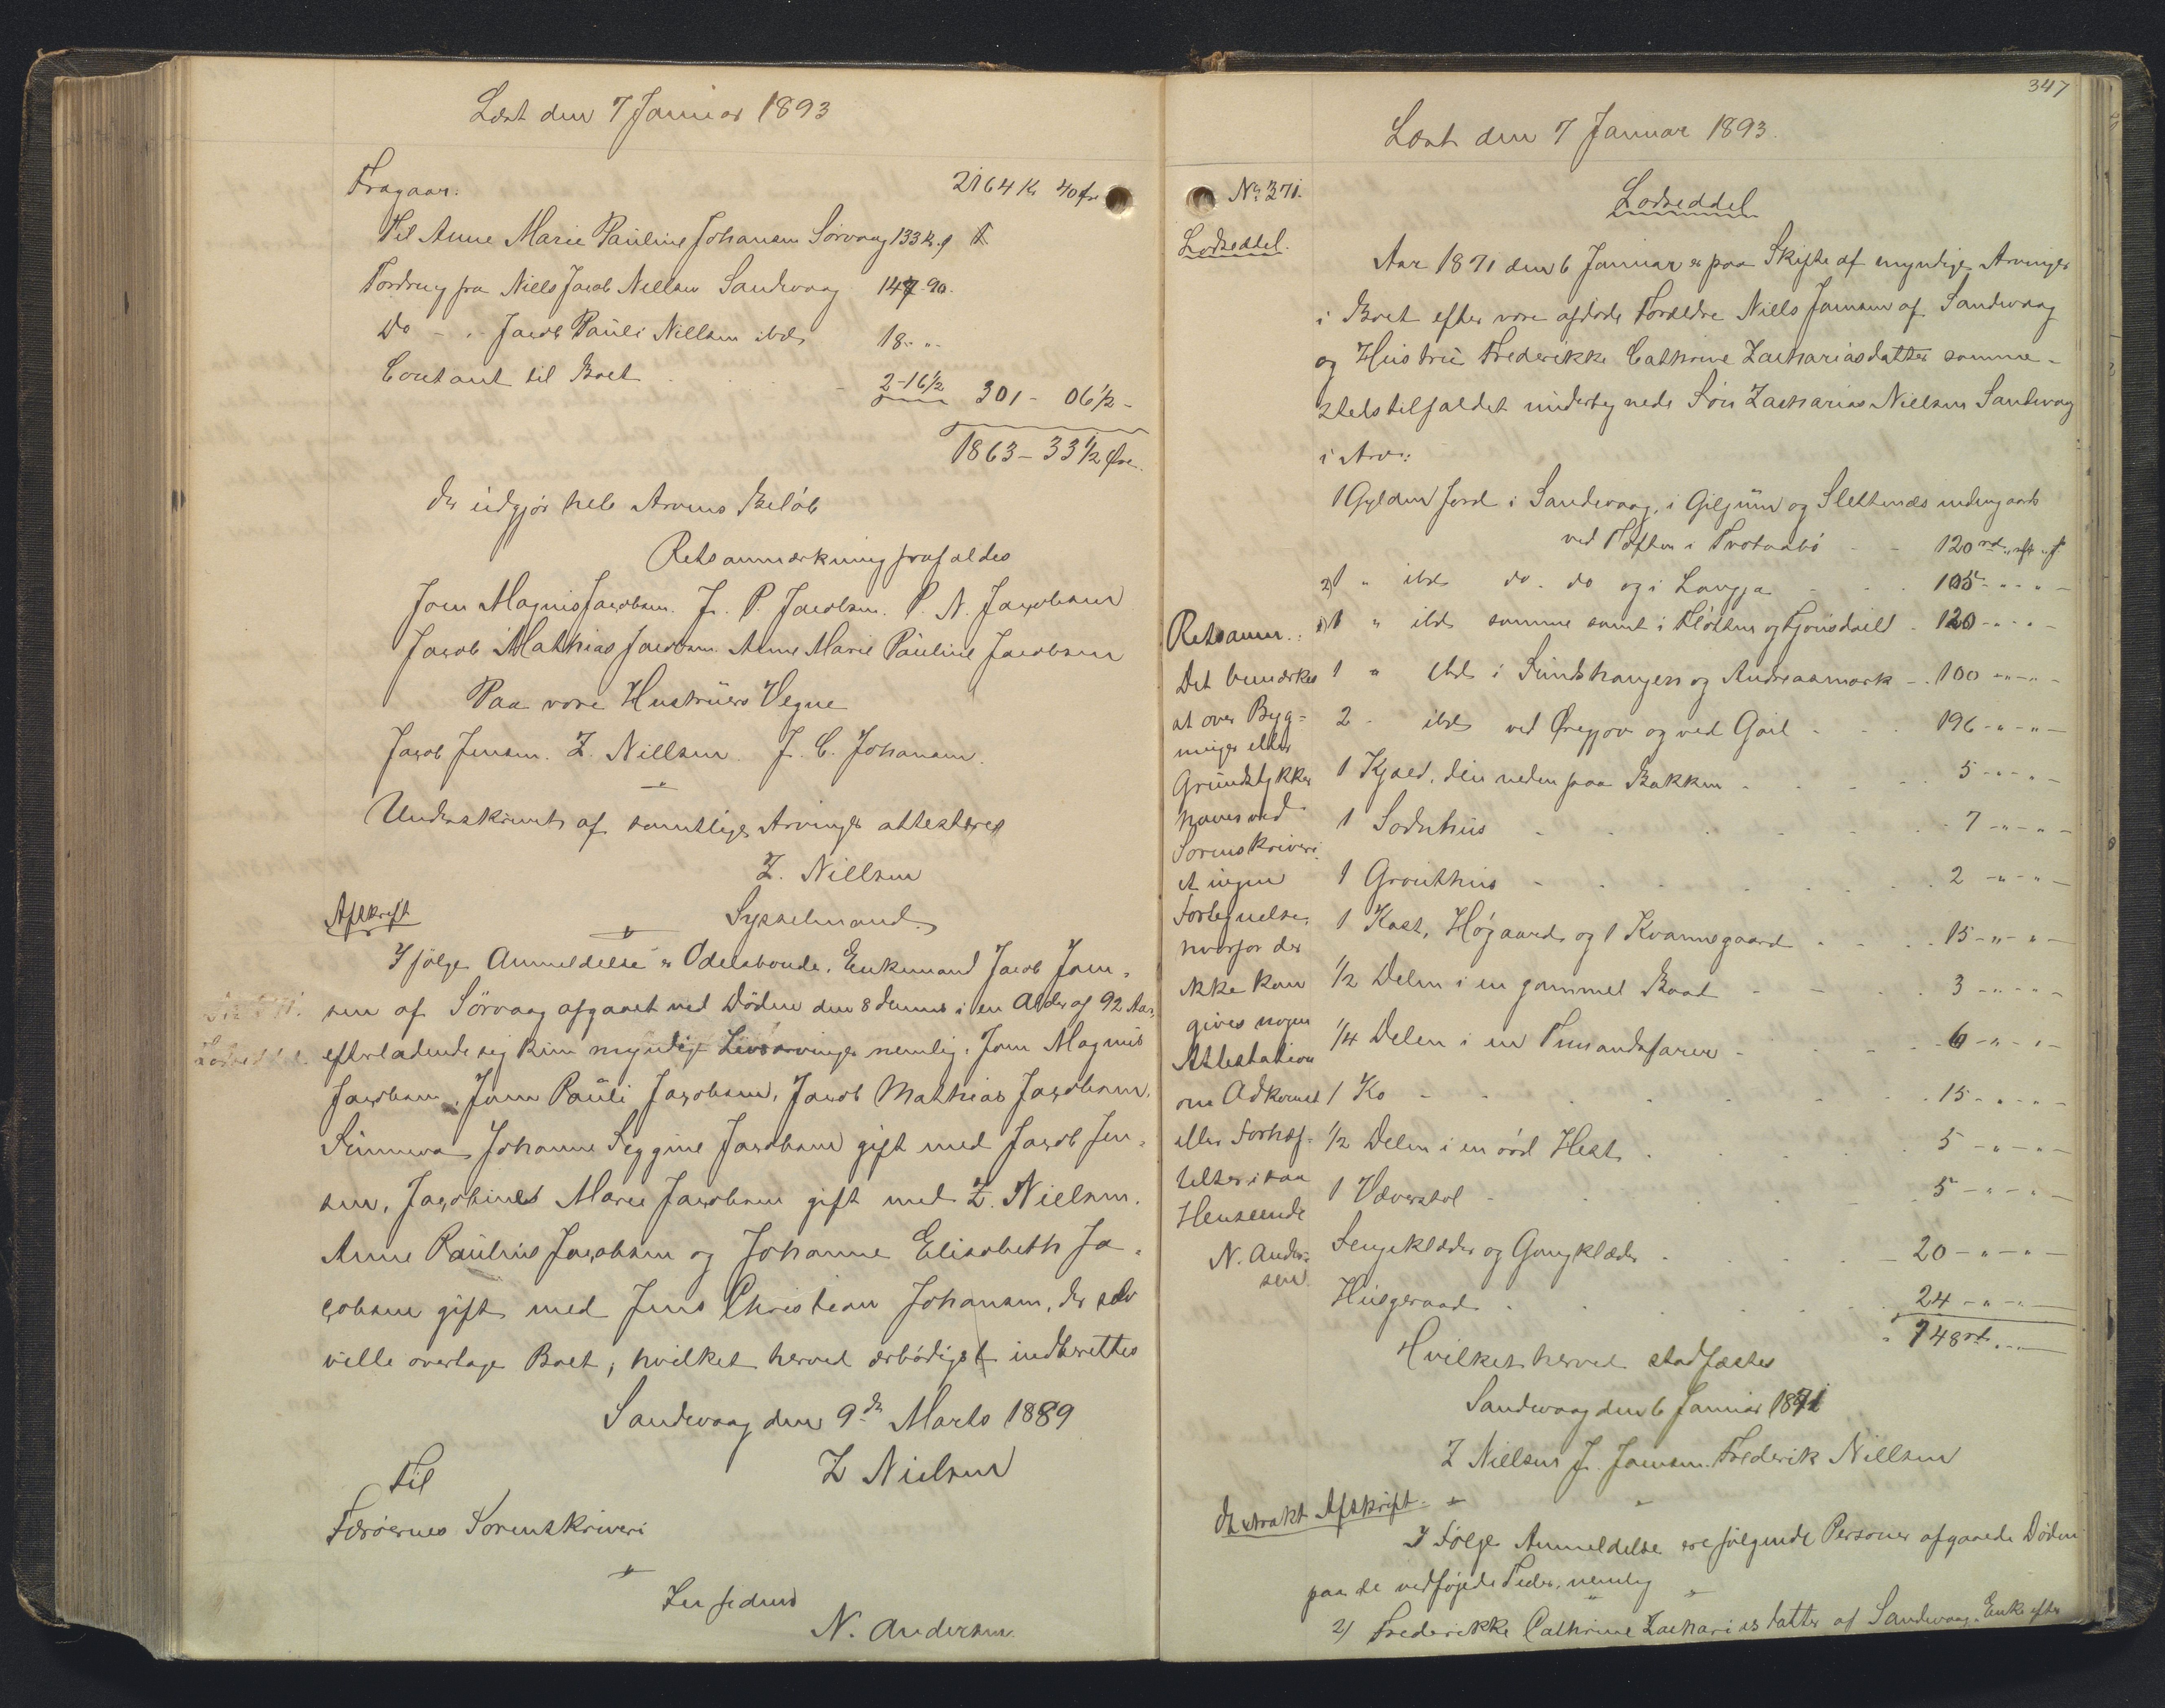 Læst den 7 Januar 1893
Fragaar.
2164 Kr 40 Øre
Til Anne Marie Pauline Johansen Sørvaag 133 Kr
Fordring fra Niels Jacob Nielsen Sandevaag 147 90.
Do - " - Jacob Pauli Nielsen ibd 18 - " -
Contant til Boet - 2-16½ 301 - 06½ -
1863 - 33½ Øre.
der udgjör hele Arvens Beløb
Retsanmærkning frafaldes
Joen Magnus Jacobsen. J. P. Jacobsen. P. N. Jacobsen
Jacob Mathias Jacobsen. Anne Marie Pauline Jacobsen
Paa vore Hustruers Vegne
Jacob Jensen. Z. Nielsen. J. C. Johansen.
Underskrevet af samtlige Arvinger attesteres
Z. Nielsen
Sysselmand.
Afskrift
Ifølge Anmeldelse er Odelsbonde, Enkemand Jacob Joen-
sen af Sörvaag afgaaet ved Døden den 8 dennes i en Alder af 92 Aar,
efterladende sig kun myndige Livsarvinger nemlig: Joen Magnus
Jacobsen, Joen Pauli Jacobsen, Jacob Mathias Jacobsen,
Sunneva Johanne Seggine Jacobsen gift med Jacob Jen-
sen, Jacobine Marie Jacobsen gift med Z. Nielsen.
Anne Pauline Jacobsen og Johanne Elisabeth Ja-
cobsen gift med Jens Christian Johansen, der selv
ville overtage Boet, hvilket herved ærbødigst indberettes
Sandevaag den 9de Marts 1889
Z Nielsen
Til
Færöernes Sorenskriveri
N. Andersen.
347
Læst den 7 Januar 1893.
No 371.
Lodseddel.
Lodseddel
Aar 1871 den 6 Januar er paa Skifte af myndige Arvinger
i Boet efter vore afdøde Forældre Niels Joensen af Sandevaag
og Hustru Frederikke Cathrine Zachariasdatter samme-
steds tilfaldet undertegnede Søn Zacharias Nielsen Sandevaag
i Arv:
1 Gylden Jord i Sandevaag, i Giljum og Slettenæs indengaards
ved Toften i Trotnabö - - 120 rd " "
2) 1 " ibd do. do og i Langja - - 105 - " - " -
3) 1 " ibd samme samt i - 120 - " - " -
1 " ibd i Sundshaugen og Andreasmark - 100 - " - " -
2 - ibd ved og ved Gail - 196 - " - " -
1 Kjæld. den neden paa Bakken - 5 - " - " -
1 Sodnhus - 7 - " - " -
1 Grouthus - 2 - " - " -
1 Kast, Høgaard og 1 Kvannegaard - 15 - " - " -
½ Delen i en gammel Baad - 3 - " - " -
¼ Delen i en - 6 - " - " -
1 Ko - 15 - " - " -
½ Delen i en rød Hest - 5 - " - " -
1 Væverstol - 5 - " - " -
Sengeklæder og Gangklæder - 20 - " - " -
Husgeraad - 24 - " - " -
748 rd " -
Retsanm.:
Det bemærkes
at over Byg-
ninger eller
Grundstykker
haves ved
Sorenskriveri-
et ingen
Fortegnelse,
hvorfor der
ikke kan
gives nogen
Attestation
om Adkomst
eller Forhæf-
telser i saa
Henseende
N. Ander-
sen.
Hvilket herved stadfæstes
Sandevaag den 6 Januar 1871
Z Nielsen J. Joensen. Frederik Nielsen
Extrakt Afskrift.
I Følge Anmeldelse ere følgende Personer afgaaede Døden
paa de vedføjede Tider, nemlig
2) Frederikke Cathrine Zachariasdatter af Sandevaag, Enke efter